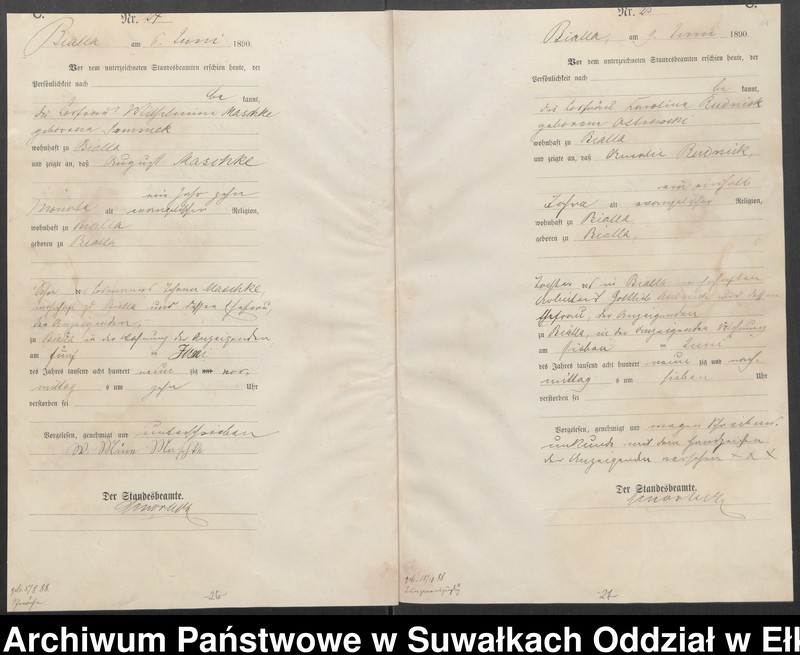 C.
Nr. 24
Bialla am 6. Juni 1890.
Vor dem unterzeichneten Standesbeamten erschien heute, der
Persönlichkeit nach
be kannt,
die Losfrau Wilhelmine Maschke
geborene Sommek
wohnhaft zu Bialla
und zeigte an, daß August Maschke
ein Jahr zehn
Monate alt evangelischer Religion,
wohnhaft zu Bialla
geboren zu Bialla
Sohn des Losmanns Johann Maschke,
wohnhaft zu Bialla und dessen Ehefrau,
der Anzeigenden,
zu Bialla in der Wohnung der Anzeigenden
am fünf ten Juni
des Jahres tausend acht hundert neun zig vor
mittag s um zehn Uhr
verstorben sei
Vorgelesen, genehmigt und unterschrieben
Der Standesbeamte.
geb. 5/8 88.
-26-
C.
Nr. 25
Bialla, am 9. Juni 1890.
Vor dem unterzeichneten Standesbeamten erschien heute, der
Persönlichkeit nach
be kannt,
die Karoline Rudnick
geborene Ostrowski
wohnhaft zu Bialla
und zeigte an, daß Amalie Rudnick,
ein einhalb
Jahre alt evangelischer Religion,
wohnhaft zu Bialla
geboren zu Bialla,
Tochter des in Bialla wohnhaften
Arbeiters Gottlieb Rudnick und dessen
Ehefrau, der Anzeigenden
zu Bialla, in der Anzeigenden Wohnung
am sieben ten Juni
des Jahres tausend acht hundert neun zig und nach
mittag s um sieben Uhr
verstorben sei
Vorgelesen, genehmigt und wegen Schreibens
unkunde mit dem Handzeichen
der Anzeigenden versehen + + +
Der Standesbeamte.
-27-
Archiwum Państwowe w Suwałkach Oddział w Ełk